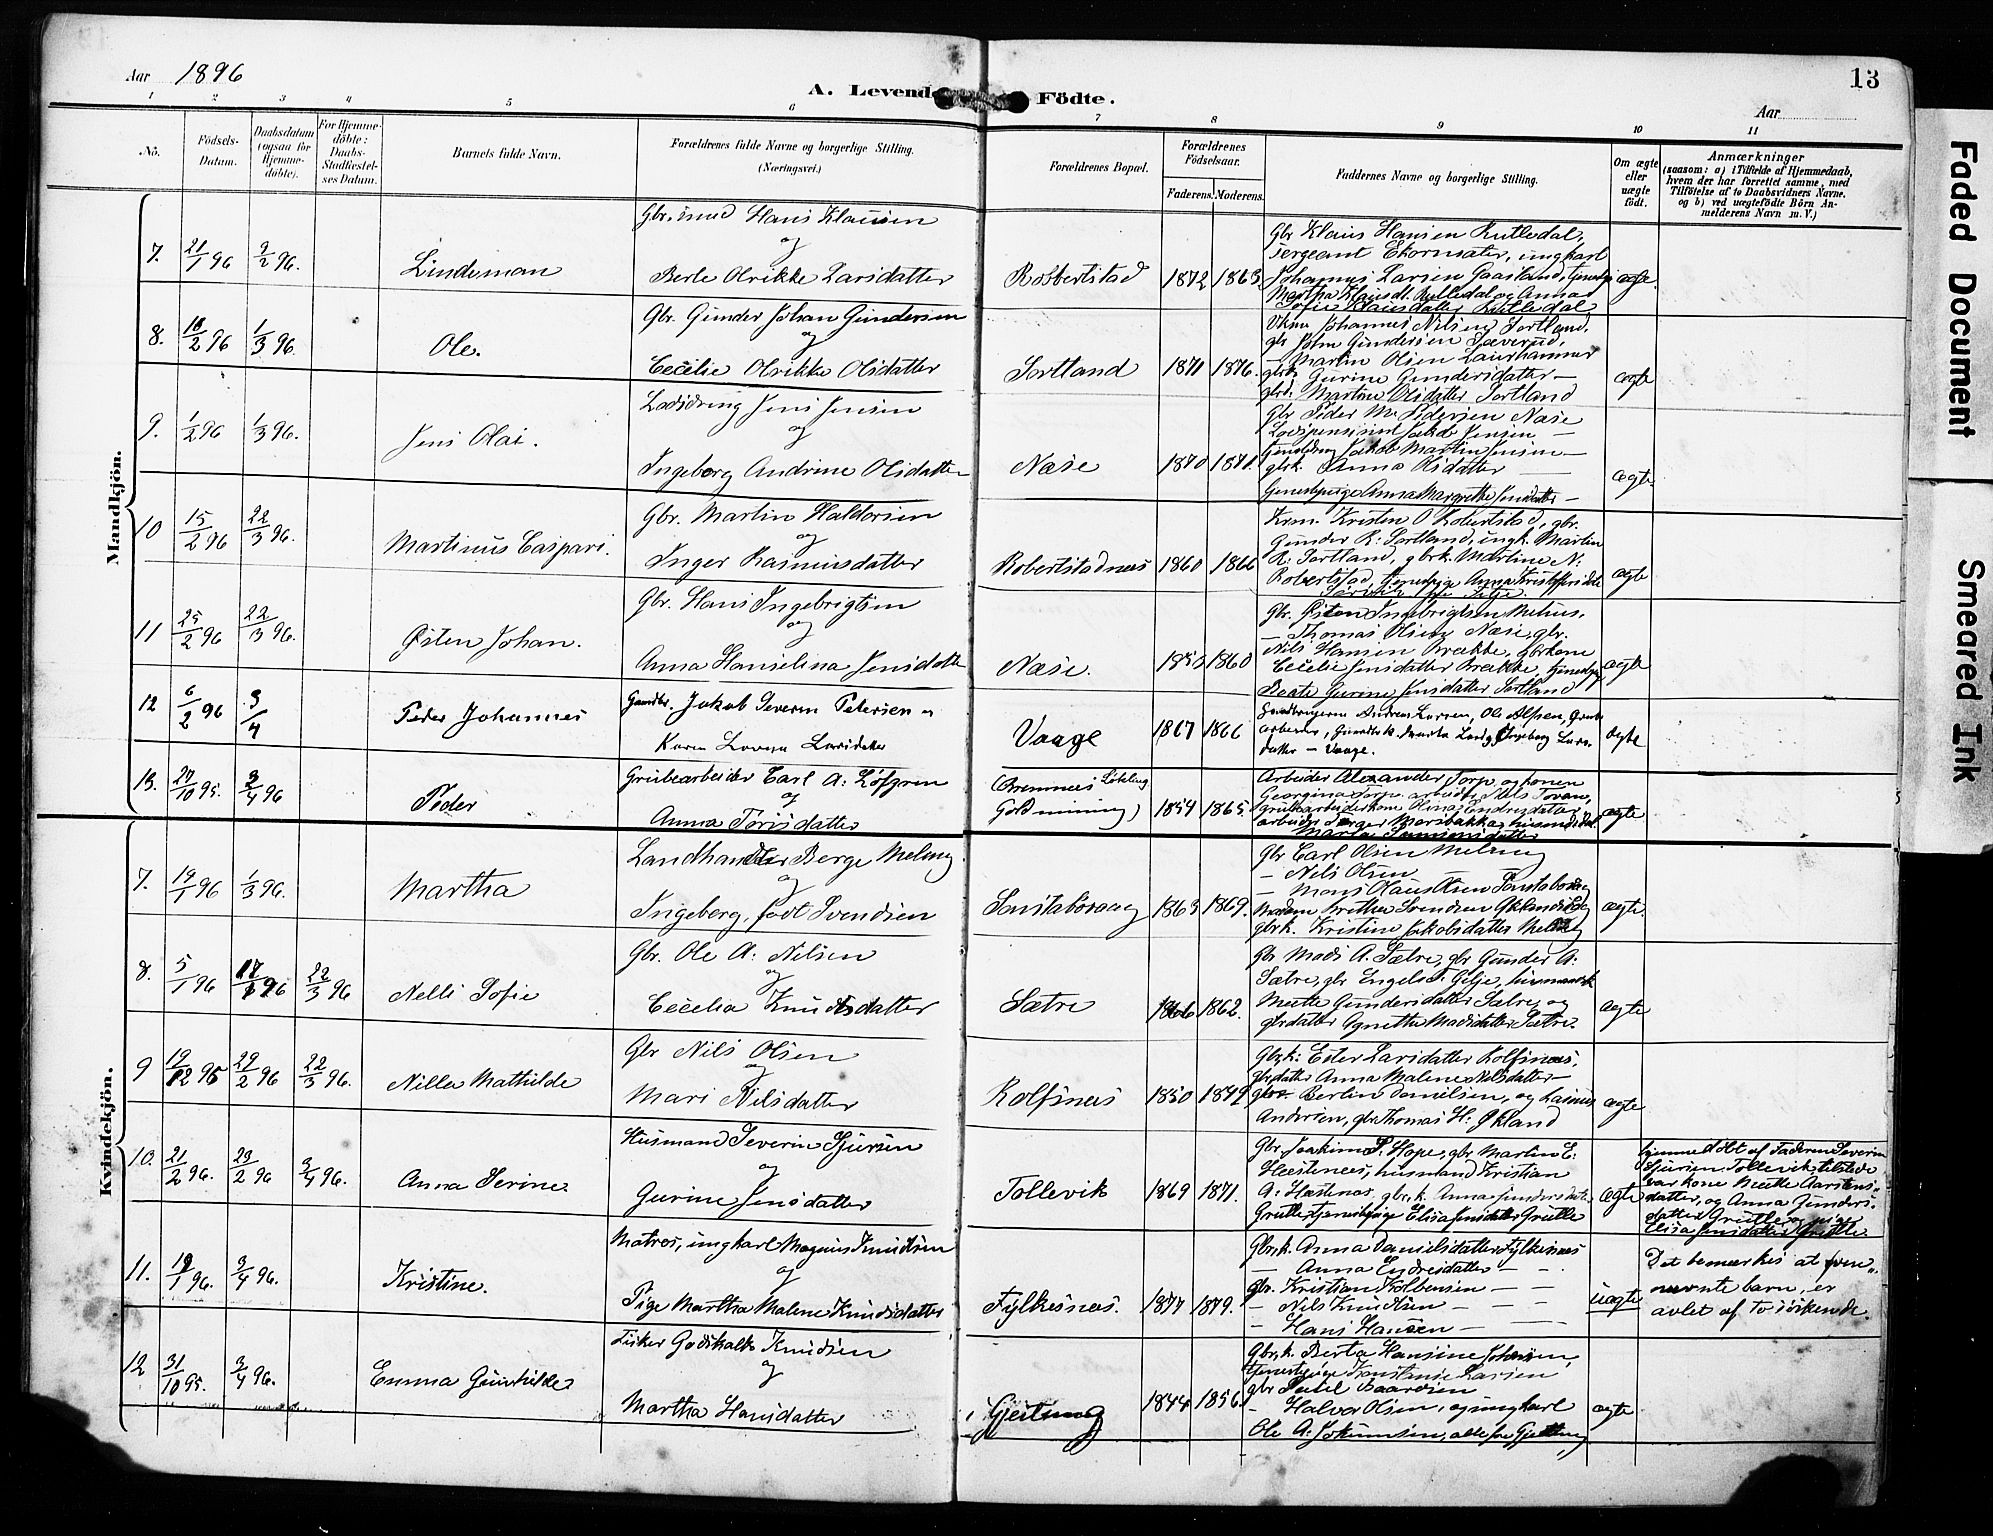 Aar 1896
A. Levende Födte.
13
Aar
1 2 3 4 5 6 7 8 9 10 11
No.
Födsels-Datum.
Daabsdatum (ogsaa for Hjemmedöbte).
For Hjemmedöbte: Daabs-Stadfæstelses Datum.
Barnets fulde Navn.
Forældrenes fulde Navne og borgerlige Stilling. (Næringsvei.)
Forældrenes Bopæl.
Forældrenes Födselsaar.
Faderens. Moderens.
Faddernes Navne og borgerlige Stilling.
Om ægte eller uægte födt.
Anmærkninger
(saasom: a) i Tilfælde af Hjemmedaab, hvem der har forrettet samme, med Tilföielse af to Daabsvidners Navne. og b) ved uægtefödte Börn Anmelderens Navn m. V.)
Mandkjön.
7. 21/1 96 9/2 96. Lindeman
Hans Klausen
og
Berle Olrikke Larsdatter
Robbertstad 1872 1863.
Gbr Klaus Hansen Rutledal,
sergeant Ekornsæter, ungkarl
Johannes Larsen Gaasland,
Martha Klausdt. Rutledal og Anna
Sofie Klausdatter Rutledal
ægte.
8. 18/2 96 1/3 96. Ole.
Gbr. Gunder Johan Gundersen
og
Cecilie Olrikke Olsdatter
Sortland 1871 1876.
Johannes Nilsen Sortland,
Gundersen Sæverud,
— Martin Olsen
Gurine Gundersdatter —
Martine Olsdatter Sortland
ægte
9. 1/2 96 1/3 96. Jens Olai.
Jens Jensen
og
Ingeborg Andrine Olsdatter
Næse 1870 1871.
Gbr Peder M. Pedersen Næse
Jakob Jensen —
Jakob Martin Jensen —
gbrk. Anna Olsdatter —
Anna Margrethe Jensdatter —
ægte.
10 15/2 96 22/3 96. Martinus Caspari.
Gbr. Martin Haldorsen
og
Inger Rasmusdatter
Robertstadnæs 1860 1866
Kristen O Robertstad, gbr.
Gunder R. Sortland, ungk. Martin
R. Sortland, gbrk. Martine N.
Robertstad,
ægte
11 25/2 96 22/3 96. Østen Johan.
Gbr. Hans Ingebrigtsen
og
Anna Hanselina Jensdatter
Næse. 1860
Gbr. Østen Ingebrigtsen
— Thomas Olsen Næse, gbr.
Nils Hansen Brække, gbrkone
Cecilie Jensdatter Brække,
Beate Gurine Jensdatter Sortland
ægte
12 6/2 96 3/4 Peder Johannes
Gaardbr. Jakob Severin Petersen
Karen Lovisa Larsdatter
Vaage 1867 1866
Gaardbrugerne Andreas Larsen,
Ingeborg Lars-
datter — Vaage.
ægte
13. 27/10 95. 3/4 96 Peder
Grubearbeider Carl A. Löfgren
og
Anna Torisdatter
Gold minning) 1854 1865.
Arbeider Alexander Torp og konen
Georgina Torp arbeider Nils
grubearbeiderkone Olina Endresdatter,
ægte
Kvindekjön.
7. 19/1 96 1/3 96. Martha
Landhandler Berge Meling
og
Ingeborg, født Svendsen
1863 1869.
Gbr Carl Olsen Meling
— Nils Olsen —
— Mons Olaus Olsen
gbrk. Kristine Jakobsdatter Meling
ægte.
8. 5/1 96 22/3 96 Nelli Sofie
Gbr. Ole A. Nilsen
og
Cecelia Knudsdatter
Sætre 1866 1862.
Gbr Mads A. Sætre, gbr Gunder A.
Sætre, gbr Engels T. Gilje,
Mette Gundersdatter Sætre, og
gbrdatter Agnethe Madsdatter Sætre.
ægte
9 19/12 95 29/2 96 22/3 96. Nilla Mathilde
Gbr Nils Olsen
og
Mari Nilsdatter
Rolfsnæs 1850
Gbrk. Ester Larsdatter Rolfsnæs,
gbrdatter Anna Malene Nilsdatter —
Berlin Danielsen, og Rasmus
Andersen, gbr Thomas H. Økland
ægte
10. 21/2 96. 23/2 96 3/4 96. Anna Serine.
Husmand Severin Sjursen
og
Gurine Jensdatter
Tollevik 1869 1871.
Gbr. Joakim S. Hope, gbr Martin E.
Hæstenes, husmand Kristian
A. Hæstenes, gbr.k. Anna Gundersdatter
Grutle, tjenestpige Elisa Jensdatter Grutle
ægte
hjemmedöbt af Faderen Severin
Sjursen Tollevik, tilstede
var kone Mette Aarstens-
datter, og Anna Gunders-
datter Grutle og pige
Elisa Jensdatter Grutle.
11. 19/1 96. 3/4 96. Kristine.
Matros, ungkarl Magnus Knudsen
og
Pige Martha Malene Knudsdatter
Fylkesnæs. 1877 1879.
Gbr.k. Anna Danielsdatter Fylkesnæs
— Anna Endresdatter — —
gbr. Kristian Kolbensen — —
— Nils Knudsen — —
— Hans Hansen — —
uægte
Det bemærkes at foven-
nævnte barn, er
avlet af to söskende.
12 31/10 95. 3/4 96. Emma Gunhilde
Fisker Godskalk Knudsen
og
Martha Hansdatter
Gjeitung 1844 1856
Gbr.k. Berta Hansine Johansen,
Tjenestpige Konstanse Larsen
gbr Baardsen
— Halvor Olsen, og ungkarl
Ole A. Jokumsen, alle fra Gjeitung
ægte
Faded Document
Smeared Ink